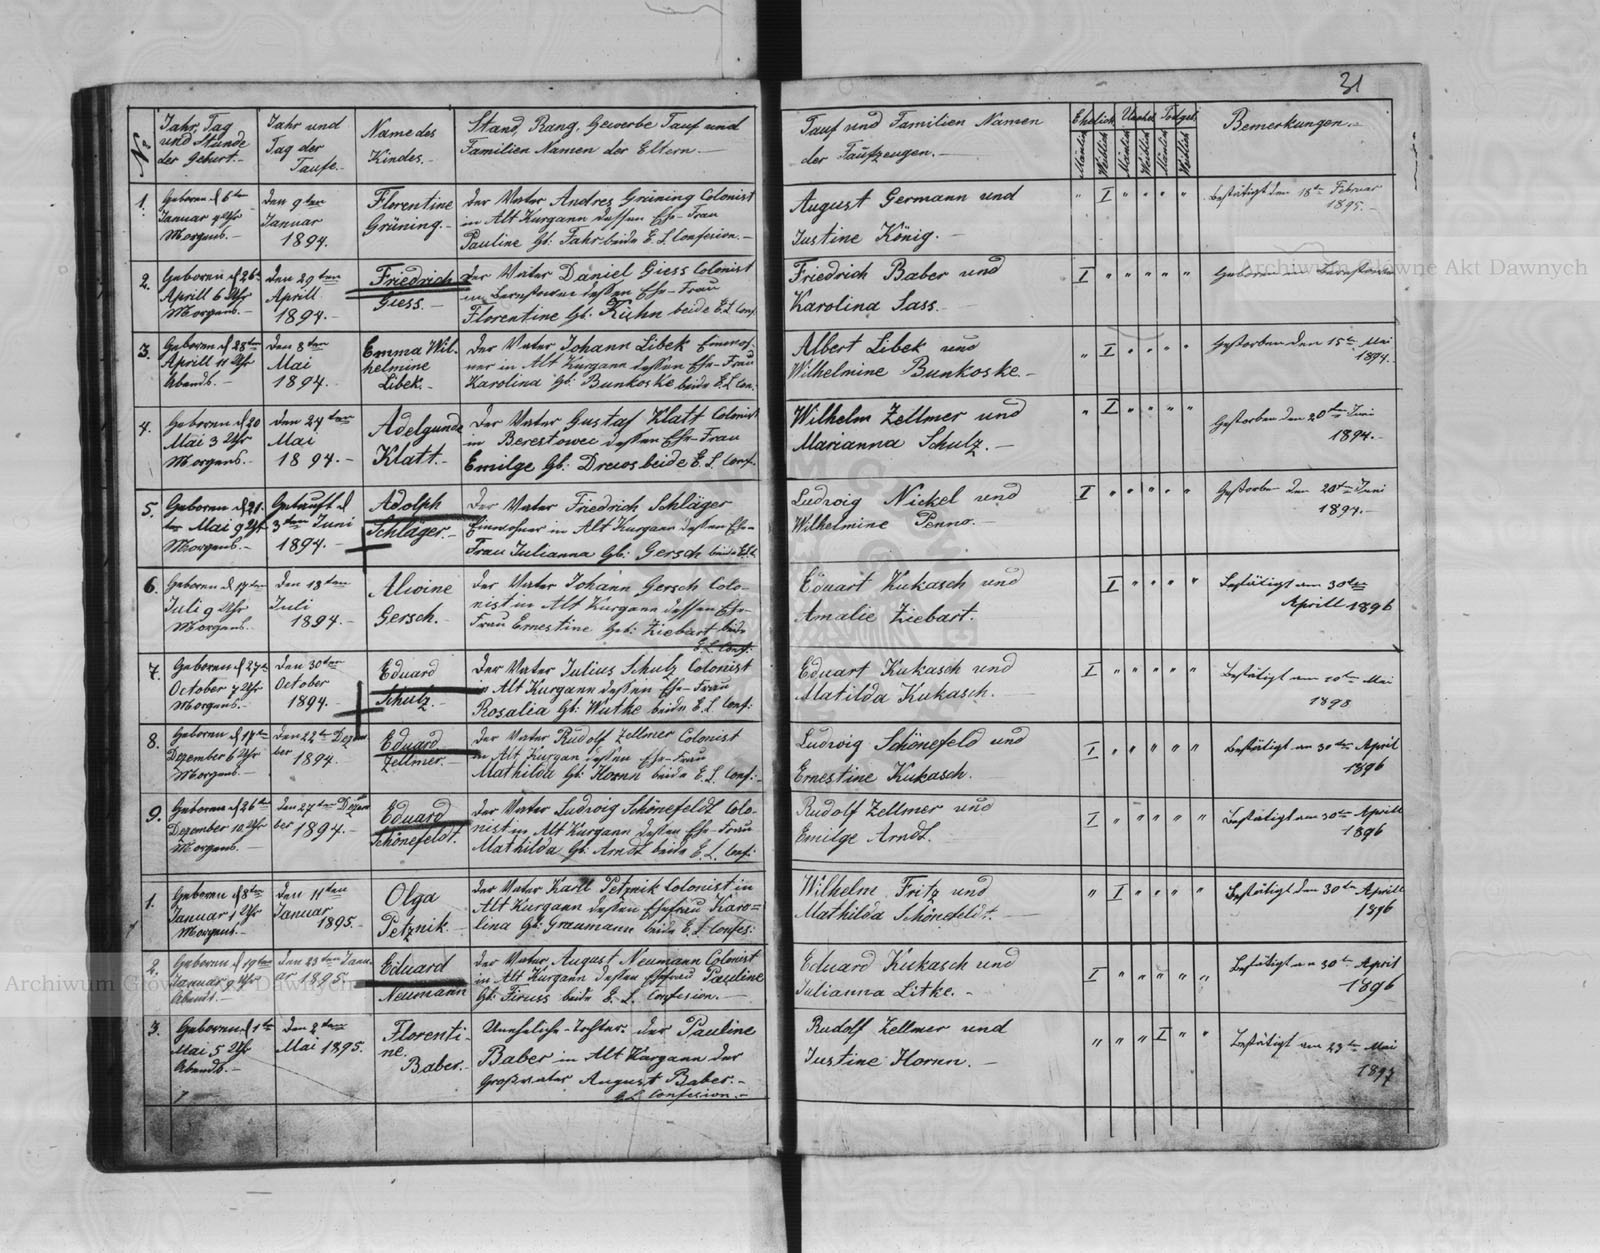 31
No
Jahr, Tag
und Stunde
der Geburt.
Jahr und
Tag der
Taufe.
Name des
Kindes.
Stand, Rang, Gewerbe Tauf und
Familien Namen der Eltern.
Tauf und Familien Namen
der Taufzeugen.
Ehelich Unehel Todgeb
Mänlich Weiblich Mänlich Weiblich Mänlich Weiblich
Bemerkungen.
1.
Geboren d 6ten
Januar 9 Uhr
Morgens.
Den 9ten
Januar
1894.
Florentine
Grüning.
Der Vater Andres Grüning Colonist
in Alt Kurgann dessen Ehe-Frau
Pauline Gb: Fahr beide E. L. Confesion.
August Germann und
Justine König.
" I " " " "
Bestätigt den 18ten Februar
1895.
2.
Geboren d 26ten
Aprill 6 Uhr
Morgens.
Den 29ten
Aprill
1894.
Friedrich
Giess.
Der Vater Daniel Giess Colonist
in Berestowen dessen Ehe-Frau
Florentine Gb: Kühn beide E. L. Conf.
Friedrich Baber und
Karolina Sass.
I " " " " "
3.
Geboren d 28ten
Aprill 11 Uhr
Abends.
Den 8ten
Mai
1894.
Emma Wil-
helmine
Libek.
Der Vater Johann Libek Einwoh-
ner in Alt Kurgann dessen Ehe-Frau
Karolina Gb: Bunkoske beide E. L. Con.
Albert Libek und
Wilhelmine Bunkoske.
" I " " " "
Gestorben den 15ten Mai
1894.
4.
Geboren d 20
Mai 3 Uhr
Morgens.
Den 24ten
Mai
1894.
Adelgunde
Klatt.
Der Vater Gustaf Klatt Colonist
in Berestowec dessen Ehe-Frau
Emilge Gb: Drews beide E. L. Conf.
Wilhelm Zellmer und
Marianna Schulz.
" I " " " "
Gestorben den 20ten Juni
1894.
5.
Geboren d 21.
ten Mai 9 Uhr
Morgens.
Getauft d
3ten Juni
1894.
Adolph
Schläger.
Der Vater Friedrich Schläger
Einwohner in Alt Kurgann dessen Ehe-
Frau Julianna Gb: Gersch beide E.L.
Ludwig Nickel und
Wilhelmine Penno.
I " " " " "
Gestorben den 20ten Juni
1894.
6.
Geboren d 17ten
Juli 9 Uhr
Morgens.
Den 18ten
Juli
1894.
Alwine
Gersch.
Der Vater Johann Gersch Colo-
nist in Alt Kurgann dessen Ehe-
Frau Ernestine Geb: Ziebart beide
E. L. Conf:
Eduart Kukasch und
Amalie Ziebart.
I " " " "
Bestätigt am 30ten
Aprill 1896
7.
Geboren d 27ten
October 7 Uhr
Morgens.
Den 30ten
October
1894.
Eduard
Schulz.
Der Vater Julius Schulz Colonist
in Alt Kurgann dessen Ehe-Frau
Rosalia Gb: Wuthe beide E. L. Conf:
Eduart Kukasch und
Matilda Kukasch.
I " " " " "
Bestätigt am 10ten Mai
8.
Geboren d 17ten
Dezember 6 Uhr
Morgens.
Den 22ten Dezem
ber 1894.
Eduard
Zellmer.
Der Vater Rudolf Zellmer Colonist
in Alt Kurgan dessen Ehe-Frau
Mathilda Gb: Hornn beide E. L. Conf:
Ludwig Schönefeld und
Ernestine Kukasch.
I " " " " "
Bestätigt am 30ten April
1896
9.
Geboren d 26ten
Dezember 10 Uhr
Morgens.
Den 27ten Dezem
ber 1894.
Eduard
Schönefeldt.
Der Vater Ludwig Schönefeldt Colo-
nist in Alt Kurgann dessen Ehe-Frau
Mathilda Gb: Arndt beide E. L. Conf:
Rudolf Zellmer und
Emilge Arndt.
I " " " " "
Bestätigt am 30ten Aprill
1896
1.
Geboren d 8ten
Januar 1 Uhr
Morgens.
Den 11ten
Januar
1895.
Olga
Petznik.
Der Vater Karll Petznik Colonist in
Alt Kurgann dessen Ehefrau Karo=
lina Gb: Graumann beide E. L. Confes:
Wilhelm Fritz und
Mathilda Schönefeldt.
" I " " " "
Bestätigt den 30ten Aprill
1896
2.
Geboren d 19ten
Januar 9 Uhr
Abends.
Den 23ten Janu
ar 1895.
Eduard
Neumann
Der Vater August Neumann Colonist
in Alt Kurgann dessen Ehefrau Pauline
Gb: Firuss beide E. L. Confesion.
Eduard Kukasch und
Julianna Litke.
I " " " " "
Bestätigt am 30ten April
1896
3.
Geboren d 1ten
Mai 5 Uhr
Abends.
Den 2ten
Mai 1895.
Florenti-
ne
Baber.
Unehelige-Tochter der Pauline
Baber in Alt Kurgann der
Großvater August Baber.
E L Confesion.
Rudolf Zellmer und
Justine Hornn.
" " " I " "
Bestätigt am 23ten Mai
1897
Archiwum Główne Akt Dawnych
Archiwum Główne Akt Dawnych